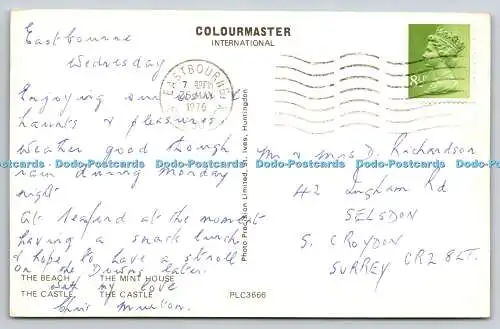 COLOURMASTER
INTERNATIONAL
Eastbourne
Wednesday
EASTBOURNE
1976
8½P
Enjoying our
haunts & pleasures,
weather good though
rain during Monday
night
At Seaford at the moment
having a snack lunch
& hope to have a stroll
on the Downs later.
with my love
Mr & Mrs D. Richardson
42 Ingham Rd
SELSDON
S. CROYDON
SURREY CR2 8LT.
Photo Precision Limited, St. Ives, Huntingdon
THE BEACH THE MINT HOUSE
THE CASTLE THE CASTLE
PLC3666
Dodo-Postcards Dodo-Postcards Dodo-Postcards Dodo-Postcards Dodo-Postcards